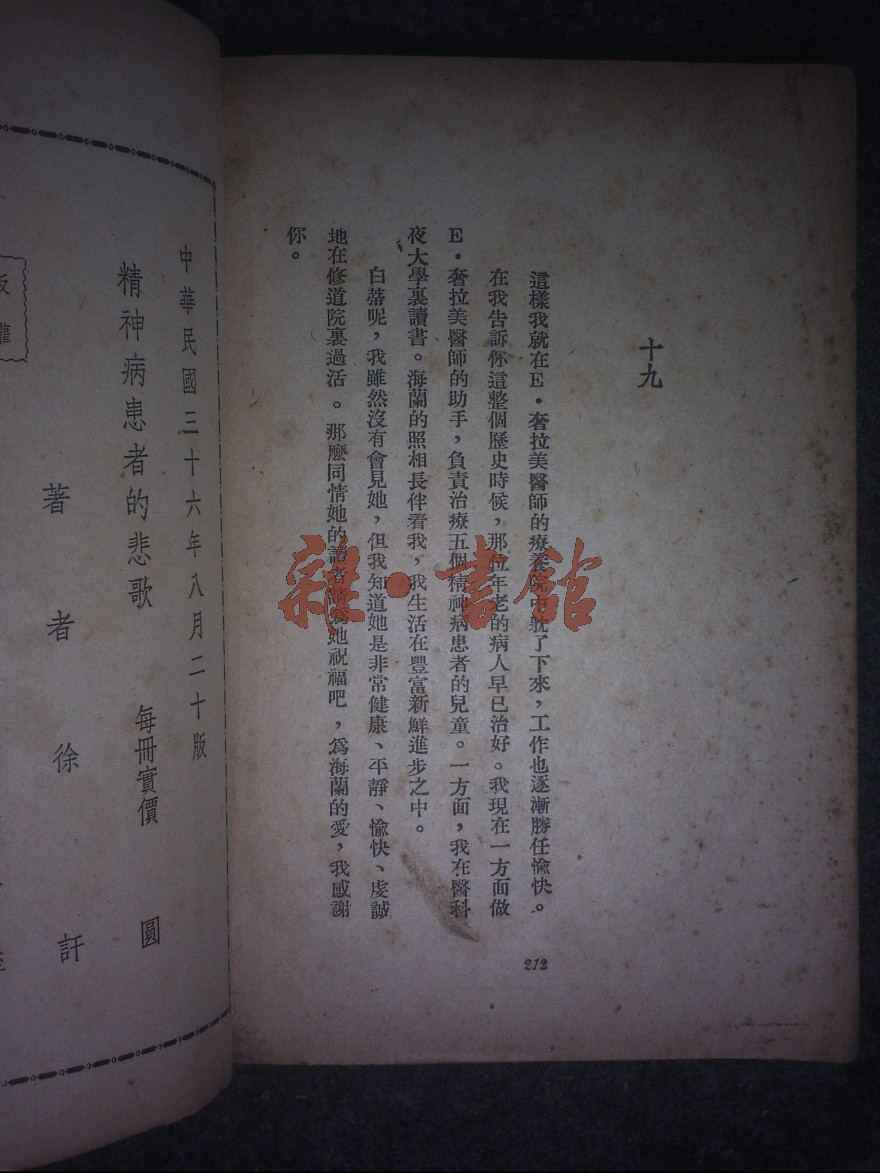 十九
這樣我就在E・奢拉美醫師的療養院中躭了下來，工作也逐漸勝任愉快。
在我告訴你這整個歷史時候，那位年老的病人早已治好。我現在一方面做
E・奢拉美醫師的助手，負責治療五個精神病患者的兒童。一方面，我在醫科
夜大學裏讀書。海蘭的照相長伴着我，我生活在豐富新鮮進步之中。
白蒂呢，我雖然沒有會見她，但我知道她是非常健康、平靜、愉快、虔誠
地在修道院裏過活。那麼同情她的讀者請爲她祝福吧，爲海蘭的愛，我感謝
你。
212
雜・書館
中華民國三十六年八月二十版
精神病患者的悲歌 每冊實價 圓
著者 徐訏
版權